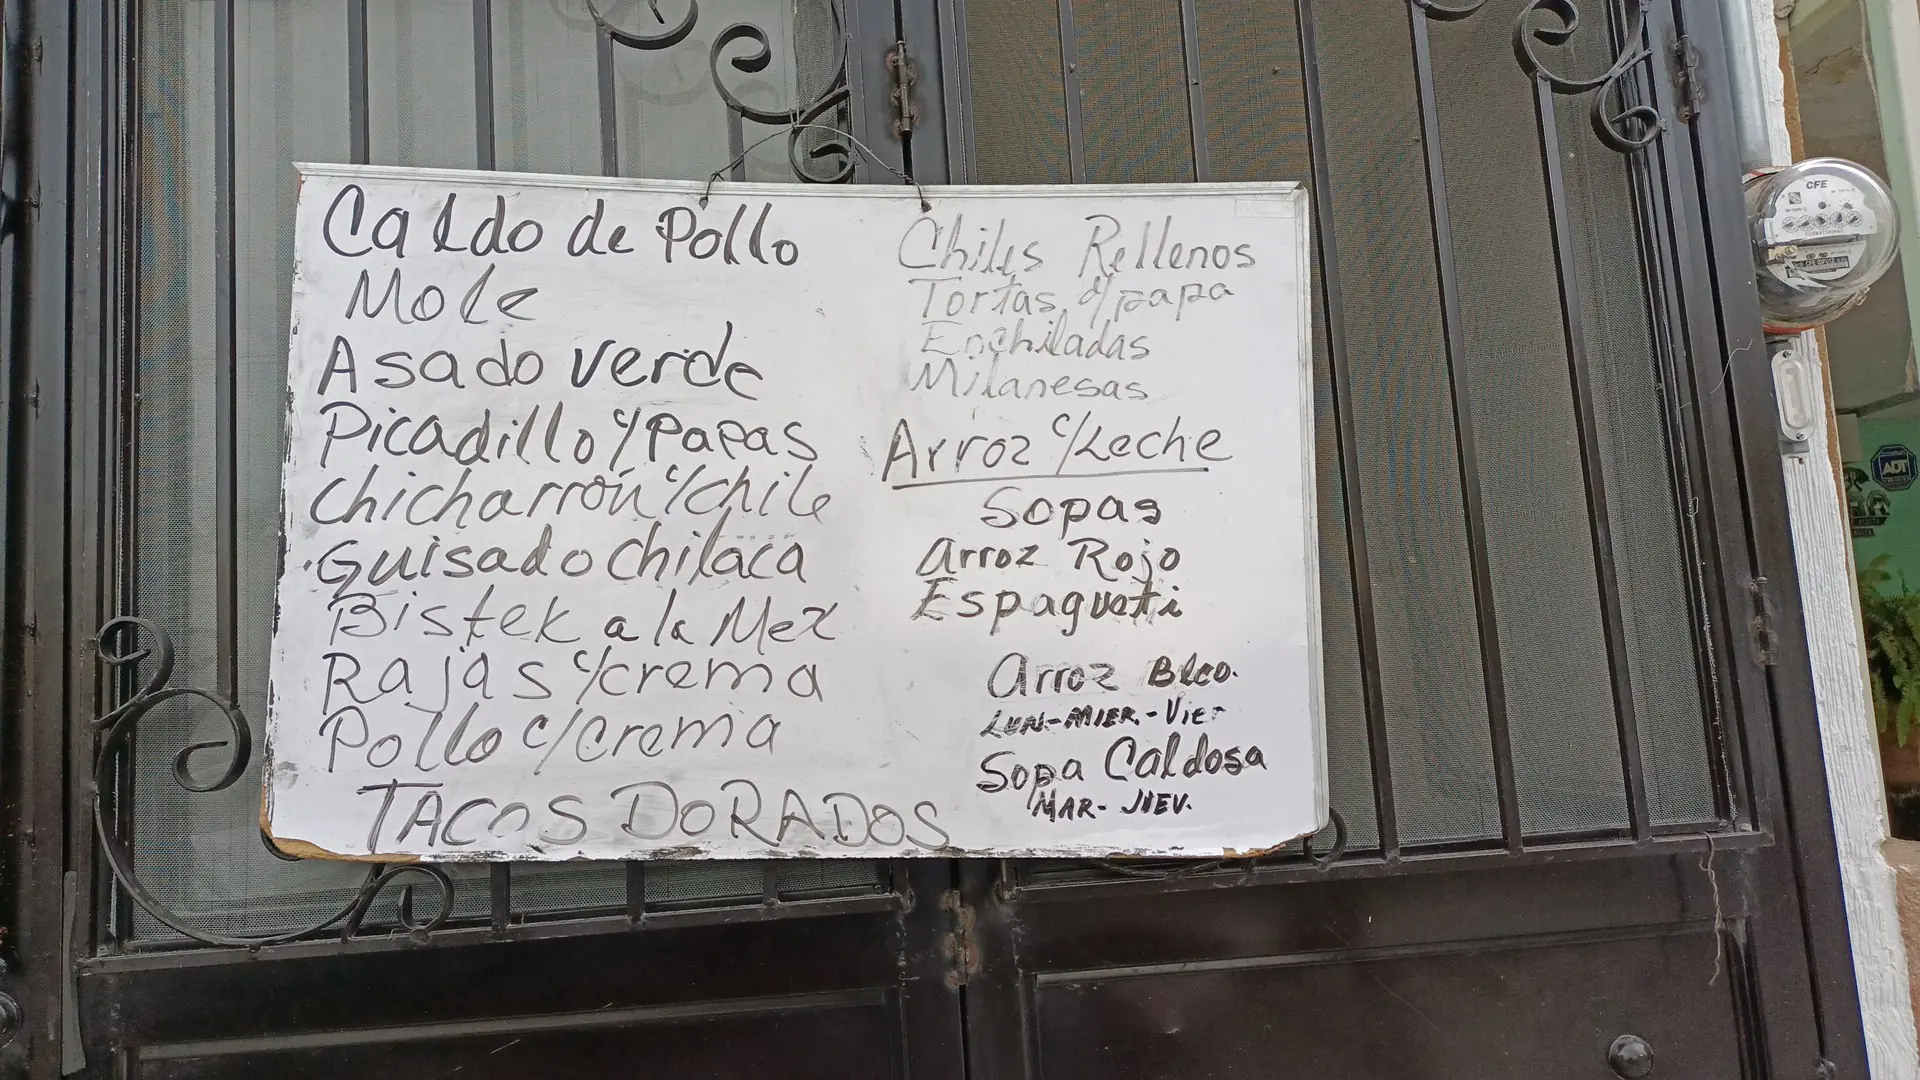 Caldo de Pollo
Mole
Asado verde
Picadillo c/Papas
Chicharrón c/chile
Guisado chilaca
Bistek a la Mex
Rajas c/crema
Pollo c/crema
TACOS DORADOS
Chiles Rellenos
Tortas d/papa
Enchiladas
Milanesas
Arroz c/Leche
Sopas
Arroz Rojo
Espagueti
Arroz Blco.
LUN-MIER.-Vier
Sopa Caldosa
MAR- JUEV.
CFE
ADT